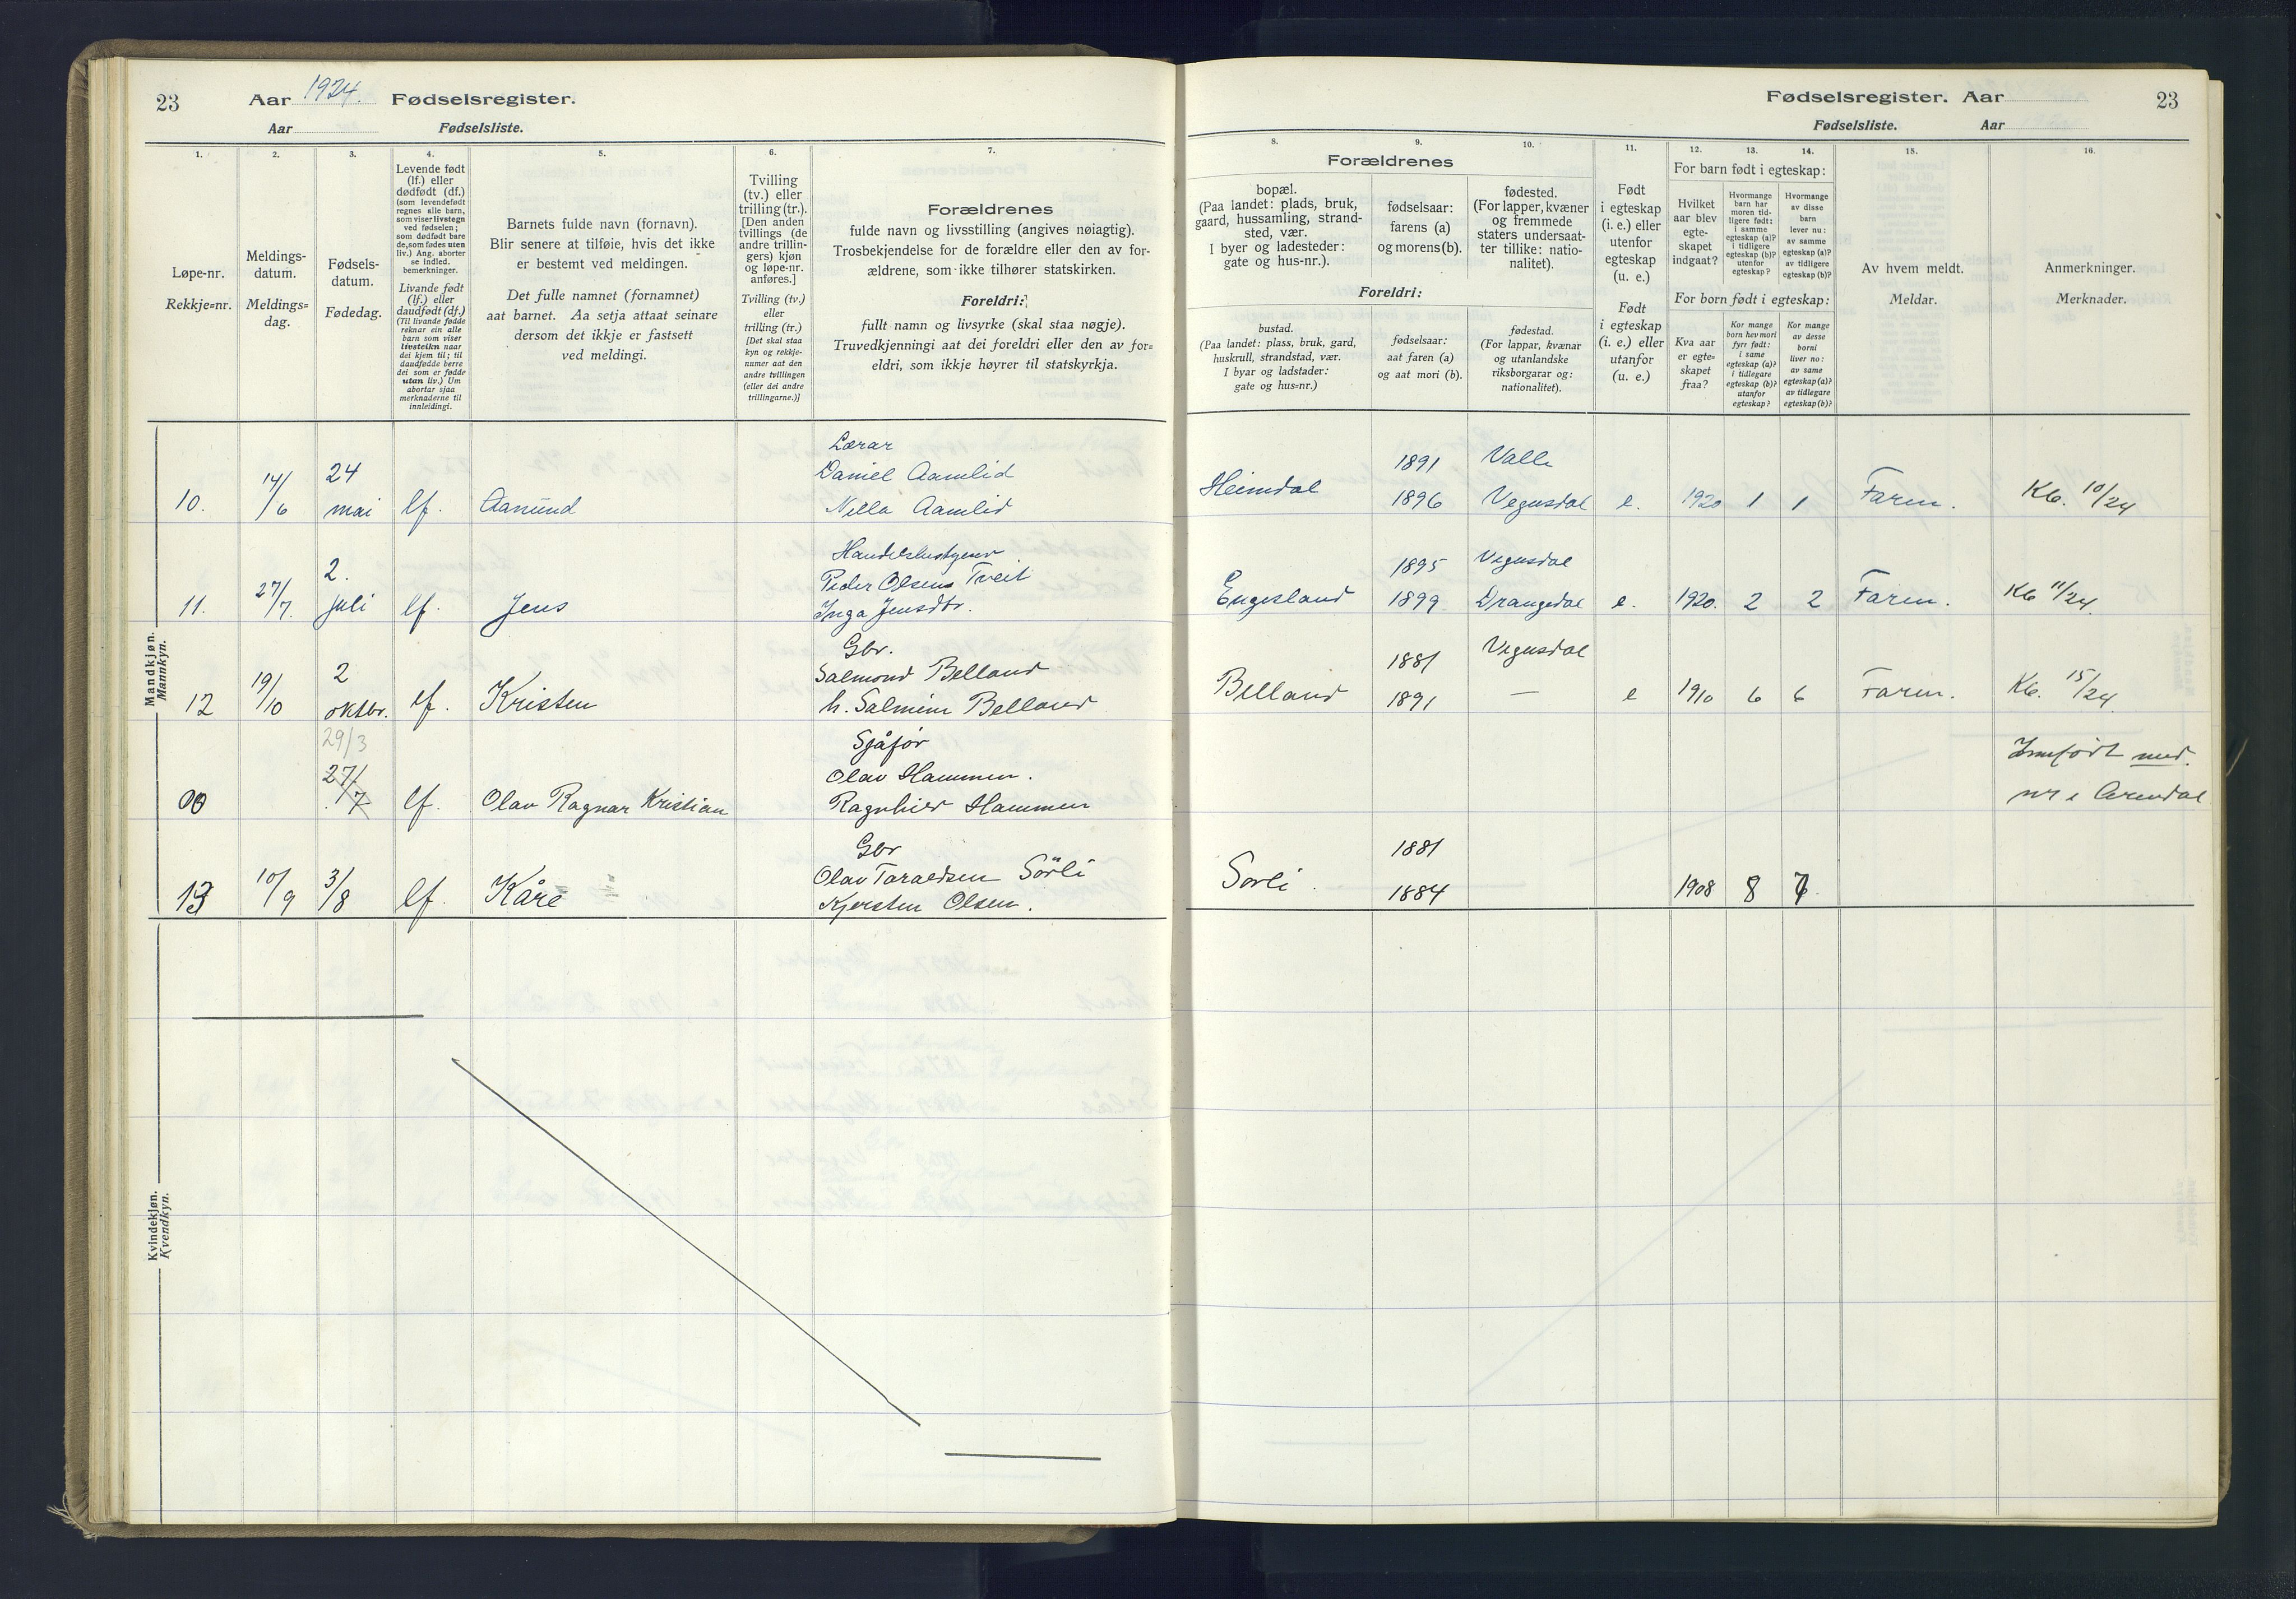 23
Aar 1924. Fødselsregister.
Aar Fødselsliste.
Fødselsregister. Aar
23
Fødselsliste. Aar
1.
Løpe-nr.
Rekkje=nr.
2.
Meldings-
datum.
Meldings=
dag.
3.
Fødsels-
datum.
Fødedag.
4.
Levende født
(lf.) eller
dødfødt (df.)
(som levendefødt
regnes alle barn,
som viser livstegn
ved fødselen;
som dødfødt bare
de, som fødes uten
liv.) Ang. aborter
se indled.
bemerkninger.
Livande født
(lf.) eller
daudfødt (df.)
(Til livande fødde
reknar ein alle
barn som viser
livsteikn naar
dei kjem til; til
daudfødde berre
dei som er fødde
utan liv.) Um
abortar sjaa
merknaderne til
innleidingi.
5.
Barnets fulde navn (fornavn).
Blir senere at tilføie, hvis det ikke
er bestemt ved meldingen.
Det fulle namnet (fornamnet)
aat barnet. Aa setja attaat seinare
dersom det ikkje er fastsett
ved meldingi.
6.
Tvilling
(tv.) eller
trilling (tr.).
[Den anden
tvillings (de
andre trillin-
gers) kjøn
og løpe-nr.
anføres.]
Tvilling (tv.)
eller
trilling (tr.)
[Det skal staa
kyn og rekkje-
numer aat den
andre tvillingen
(eller dei andre
trillingarne.)]
7.
Forældrenes
fulde navn og livsstilling (angives nøiagtig).
Trosbekjendelse for de forældre eller den av for-
ældrene, som ikke tilhører statskirken.
Foreldri:
fullt namn og livsyrke (skal staa nøgje).
Truvedkjenningi aat dei foreldri eller den av for=
eldri, som ikkje høyrer til statskyrkja.
Forældrenes
8.
bopæl.
(Paa landet: plads, bruk,
gaard, hussamling, strand-
sted, vær.
I byer og ladesteder:
gate og hus-nr.).
9.
fødselsaar:
farens (a)
og morens (b).
10.
fødested.
(For lapper, kvæner
og fremmede
staters undersaat-
ter tillike: natio-
nalitet).
Foreldri:
bustad.
(Paa landet: plass, bruk, gard,
huskrull, strandstad, vær.
I byar og ladstader:
gate og hus=nr.)
fødselsaar:
aat faren (a)
og aat mori (b).
fødestad.
(For lappar, kvænar
og utanlandske
riksborgarar og:
nationalitet).
11.
Født
i egteskap
(i. e.) eller
utenfor
egteskap
(u. e.)
Født
i egteskap
(i. e.) eller
utanfor
(u. e.)
12. 13. 14.
For barn født i egteskap:
Hvilket
aar blev
egte-
skapet
indgaat?
Hvormange
barn har
moren tid-
ligere født:
i samme
egteskap (a)?
i tidligere
egteskap (b)?
utenfor
egteskap?
Hvormange
av disse
barn
lever nu:
av samme
egteskap (a)?
av tidligere
egteskap (b)?
For born født i egteskap:
Kva aar
er egte=
skapet
fraa?
Kor mange
born hev mori
fyrr født:
i same
egteskap (a)?
i tidlegare
egteskap (b)?
utanfor
egteskap?
Kor mange
av desse
borni
liver no:
av same
egteskap (a)?
av tidlegare
egteskap (b)?
15.
Av hvem meldt.
Meldar.
16.
Anmerkninger.
Merknader.
Mandkjøn.
Mannkyn.
Lærar
10. 14/6 24 mai lf. Aamund Daniel Aamlid
Nella Aamlid
Heimdal 1891 Valle
1896 Vegusdal e. 1920 1 1 Faren. Kb. 10/24
11. 27/7. 2. juli lf. Jens
Peder Olsens Tveit
Inga Jensdtr.
Engesland 1895 Vegusdal
1899 Drangedal e. 1920. 2 2 Faren. Kb 11/24.
Gbr.
12 19/10 2 oktbr. lf. Kristen Salmond Belland
h. Salmine Belland
Belland 1881 Vegusdal
1891 — e 1910 6 6 Faren. Kb. 15/24
29/3
Sjåfør
00 27/7 lf. Olav Ragnar Kristian Olav Hammen.
Ragnhild Hammen
Innført
Arendal
Gbr
13 10/9 3/8 lf. Kåre Olav Taraldsen Sörli
Kjersten Olsen.
Sorli. 1881
1884 1908 8 7
Kvindekjøn.
Kvendkyn.